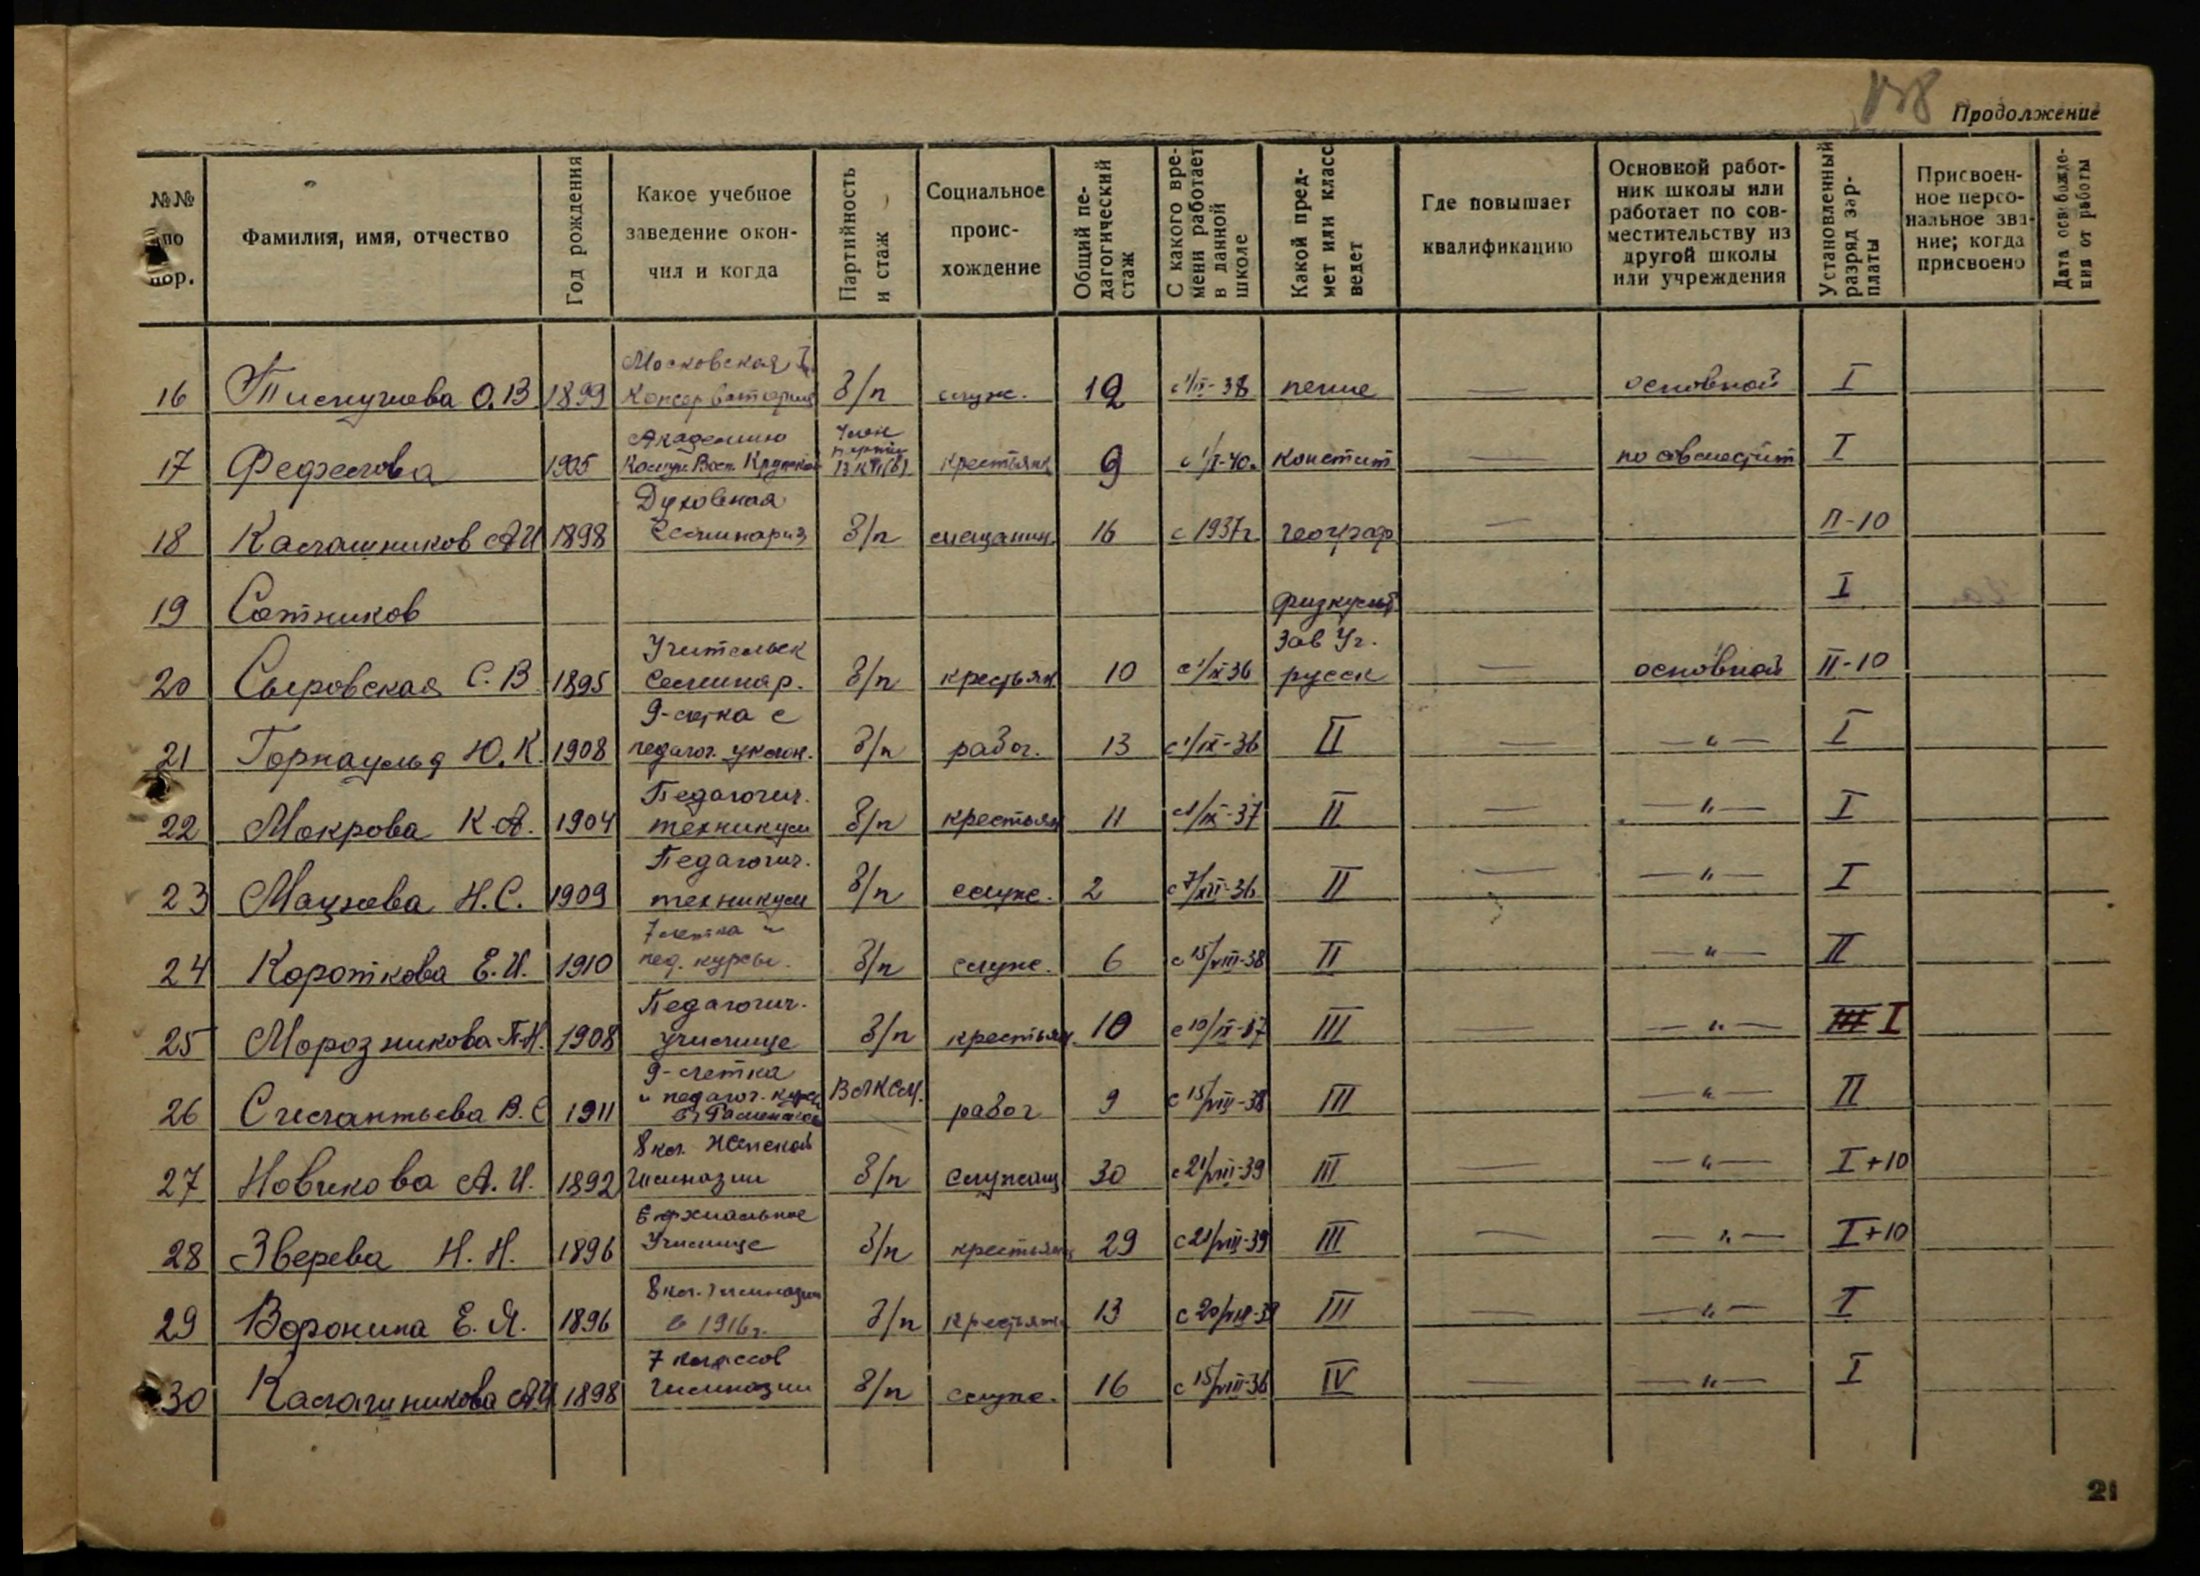 Продолжение
№№ по пор.
Фамилия, имя, отчество
Год рождения
Какое учебное заведение окончил и когда
Партийность и стаж
Социальное происхождение
Общий педагогический стаж
С какого времени работает в данной школе
Какой предмет или класс ведет
Где повышает квалификацию
Основной работник школы или работает по совместительству из другой школы или учреждения
Установленный разряд зарплаты
Присвоенное персональное звание; когда присвоено
Дата освобождения от работы
16 О.В 1899 Московская Консерватория б/п служ. 12 с 1/IX-38 пение — основной I
17 1905 Академию Комун. Восп. Крупской Член партии ВКП(б) крестьянк 9 с 1/X-40г. констит — по совместит I
18 Калашников А.И 1898 Духовная Семинария б/п мещанин 16 с 1937г. географ — II-10
19 Сотников физкульт. I
20 Сыровская С.В 1895 Учительск Семинар. б/п крестьян 10 с 1/IX 36 Зав Уч. русск — основной II-10
21 Ю.К. 1908 9-летка с педагог. уклон. б/п рабоч. 13 с 1/IX-36 II — —"— I
22 Мокрова К.А. 1904 Педагогич. техникум б/п крестьян 11 с 1/IX-37 II — —"— I
23 Н.С. 1909 Педагогич. техникум б/п служ. 2 с 7/XII-36 II — —"— I
24 Короткова Е.И. 1910 7 летка и пед. курсы. б/п служ. 6 с 15/VIII-38 II — —"— II
25 Морозникова П.Н. 1908 Педагогич. училище б/п крестьян. 10 с 10/IX-37 III — —"— III I
26 В.С 1911 9-летка и педагог. курсы ВЛКСМ. рабоч 9 с 15/VIII-38 III — —"— II
27 Новикова А.И. 1892 8 кл. Женской Гимназии б/п служащ 30 с 21/VIII-39 III — —"— I+10
28 Зверева Н.Н. 1896 Епархиальное Училище б/п крестьянк 29 с 21/VIII-39 III — —"— I+10
29 Воронина Е.Я. 1896 8 кл. Гимназии в 1916г. б/п крестьянк 13 с 20/VIII-39 III — —"— I
30 Калашникова А.И 1898 7 классов Гимназии б/п служ. 16 с 15/VIII-36 IV — —"— I
21